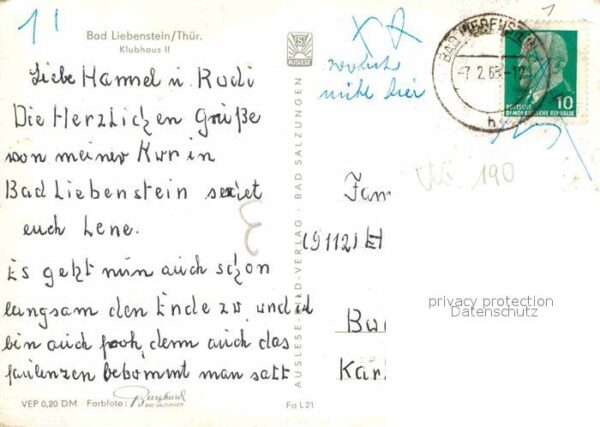 Bad Liebenstein/Thür.
Klubhaus II
Liebe Hannel u. Rudi
Die Herzlichen Grüße
von meiner Kur in
Bad Liebenstein sendet
euch Lene.
Es geht nun auch schon
langsam den Ende zu und
bin auch froh, denn auch das
faulenzen bekommt man satt
VEP 0,20 DM Farbfoto: Burghard
BAD SALZUNGEN
Fa L 21
AUSLESE
AUSLESE-BILD-VERLAG · BAD SALZUNGEN
nicht hier
BAD LIEBENSTEIN
-7.2.65.-12
DEUTSCHE
DEMOKRATISCHE REPUBLIK
10
190
Fam
(9112)
Kar
privacy protection
Datenschutz